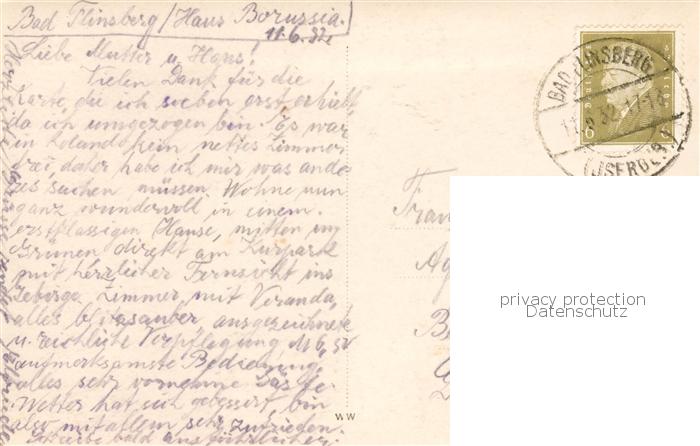 Bad Flinsberg / Haus Borussia.
11.6.32.
Liebe Mutter u. Hans!
Vielen Dank für die
Karte, die ich soeben erst erhielt,
da ich umgezogen bin. Es war
in Rolandsheim nettes Zimmer
frei, daher habe ich mir was ande-
res suchen müssen. Wohne nun
ganz wundervoll in einem
erstklassigen Hause, mitten im
Grünen direkt am Kurpark
mit herrlicher Fernsicht ins
Gebirge. Zimmer mit Veranda,
alles blitzsauber, ausgezeichnete
u. reichliche Verpflegung M 6,50
aufmerksamste Bedienung,
alles sehr vornehm. Das
Wetter hat sich gebessert, bin
also mit allem sehr zufrieden.
Schreibe bald ausführlicher.
Herzliche Grüsse
BAD FLINSBERG
11.6.32.17-18
(ISERGEB.)
6 6
Frau
W W
privacy protection
Datenschutz